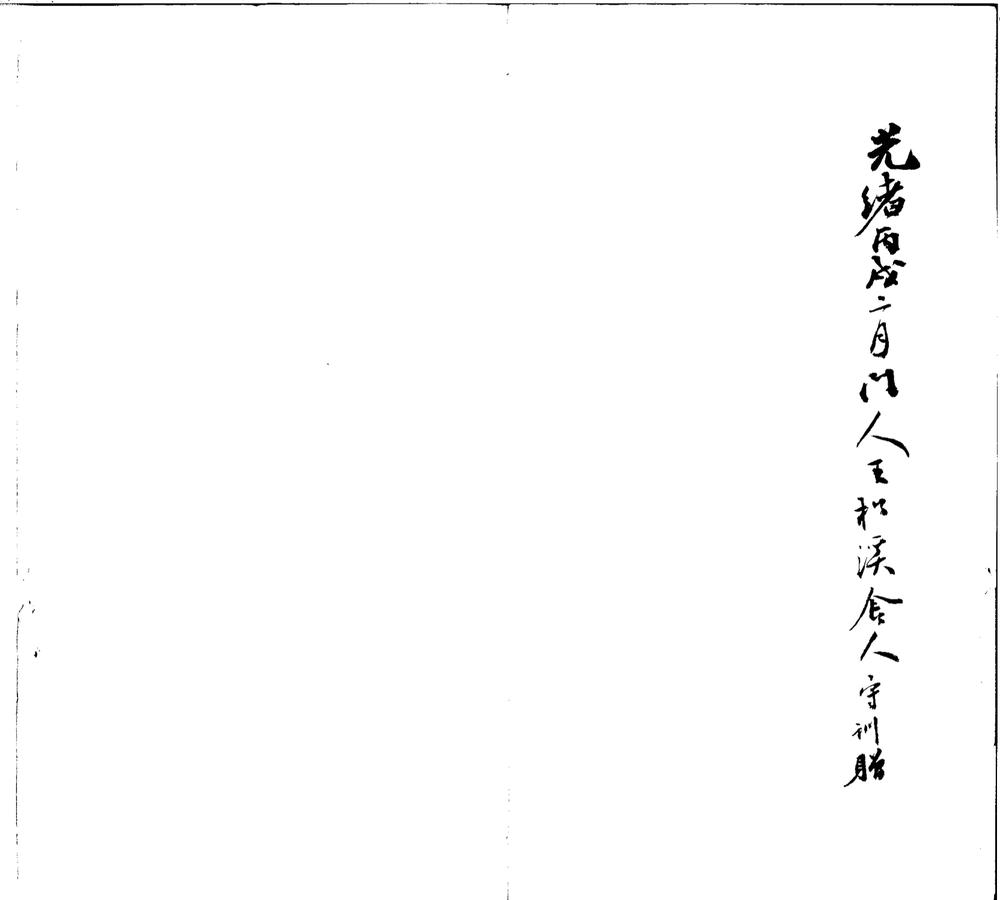 光緒丙戌二月門人王松溪舍人守訓贈